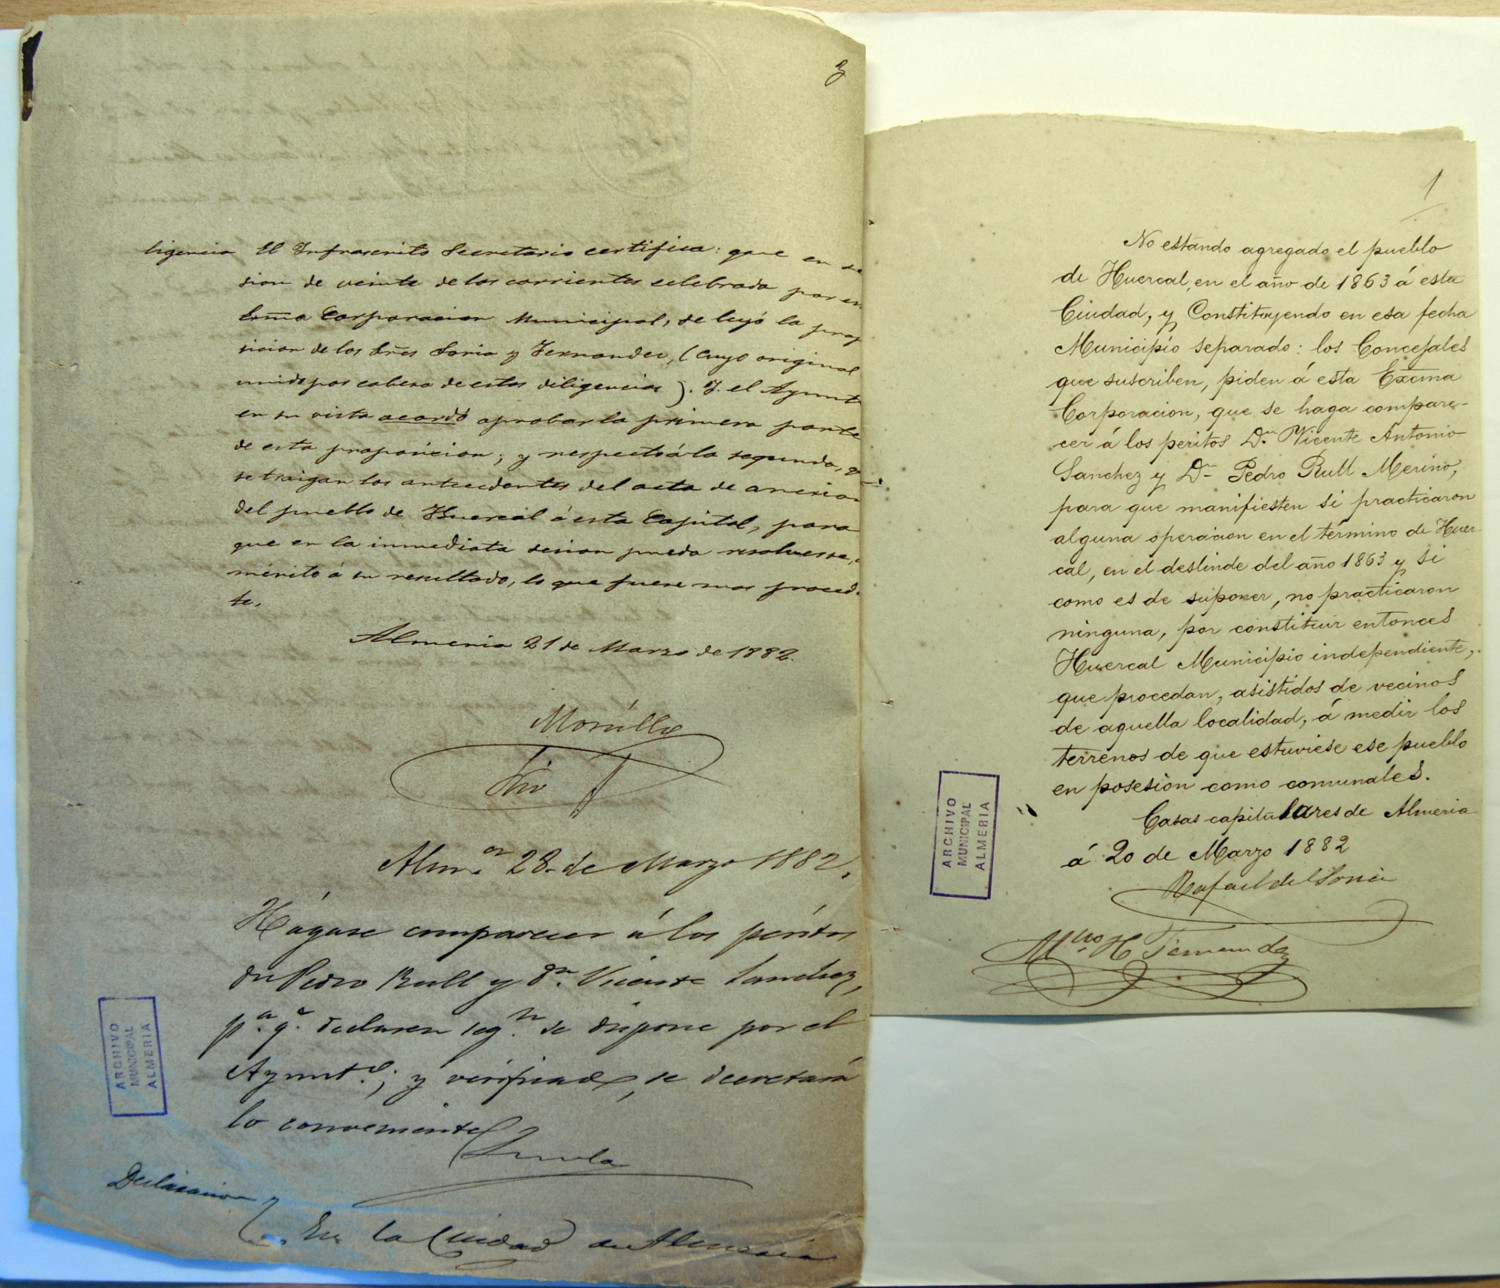 3
ligencia El Infrascrito Secretario certifica: que en se
sion de veinte de los corrientes celebrada por en
Corporacion Municipal, se leyó la prop
sicion de los Sres Soria y Fernandez, (cuyo original
unido por cabeza de estas diligencias). Y el Ayunt
en su vista acordó aprobar la primera parte
de esta proposicion; y respecto á la segunda, q
se traigan los antecedentes del acta de anexion
del pueblo de Huercal á esta Capital, para
que en la inmediata sesion pueda resolverse,
mérito á su resultado, lo que fuere mas proced
te.
Almeria 21 de Marzo de 1882.
Morillo
Alm.a 28 de Marzo 1882.
Hágase comparecer á los peritos
Dn Pedro Rull y Dn. Vicente Sanchez,
pa. q.e declaren segn. se dispone por el
Ayuntº.; y verificado, se decretará
lo conveniente
Declaracion
En la Ciudad de Almeria
ARCHIVO
MUNICIPAL
ALMERIA
1
No estando agregado el pueblo
de Huercal, en el año de 1863 á esta
Ciudad, y Constituyendo en esa fecha
Municipio separado: los Concejales
que suscriben, piden á esta Excma
Corporacion, que se haga compare-
cer á los peritos Dn. Vicente Antonio
Sanchez y Dn Pedro Rull Merino,
para que manifiesten si practicaron
alguna operacion en el término de Huer-
cal, en el deslinde del año 1863 y si
como es de suponer, no practicaron
ninguna, por constituir entonces
Huercal Municipio independiente,
que procedan, asistidos de vecinos
de aquella localidad, á medir los
terrenos de que estuviese ese pueblo
en posesion como comunales.
Casas capitulares de Almeria
á 20 de Marzo 1882
Rafael de Soria
H Fernandez
ARCHIVO
MUNICIPAL
ALMERIA